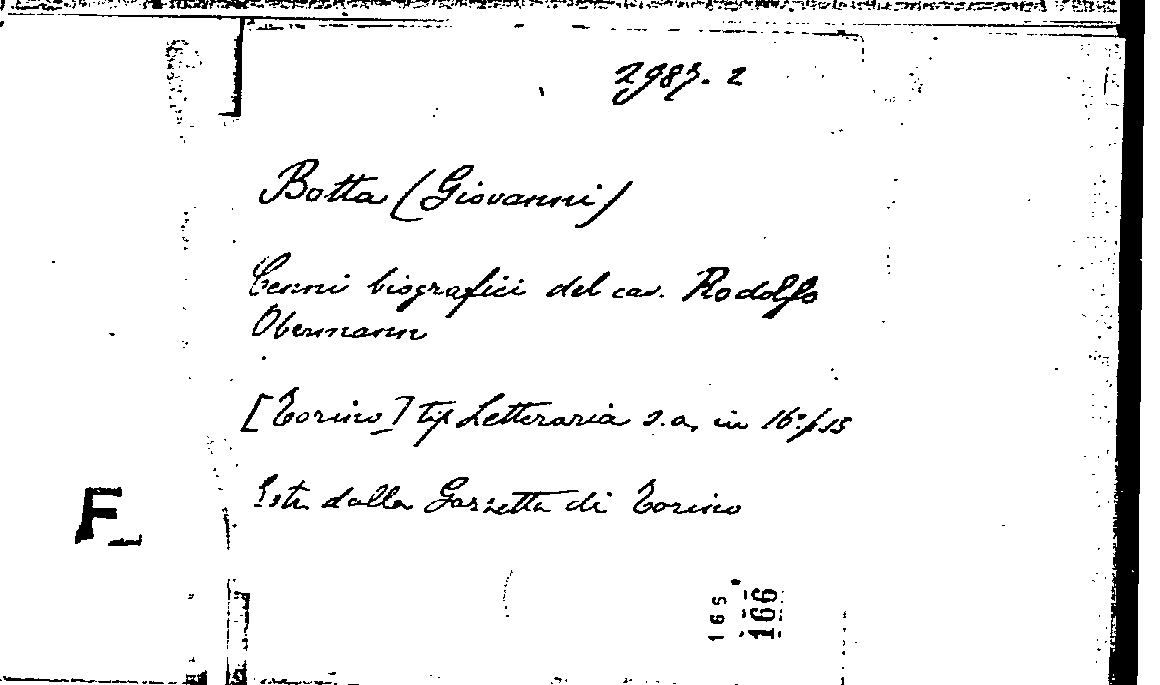 2987. 2
Botta (Giovanni)
Cenni biografici del cav. Rodolfo
Obermann
[Torino] tip Letteraria s.a. in 16º p 15
Estr. dalla Gazzetta di Torino
F
165
166